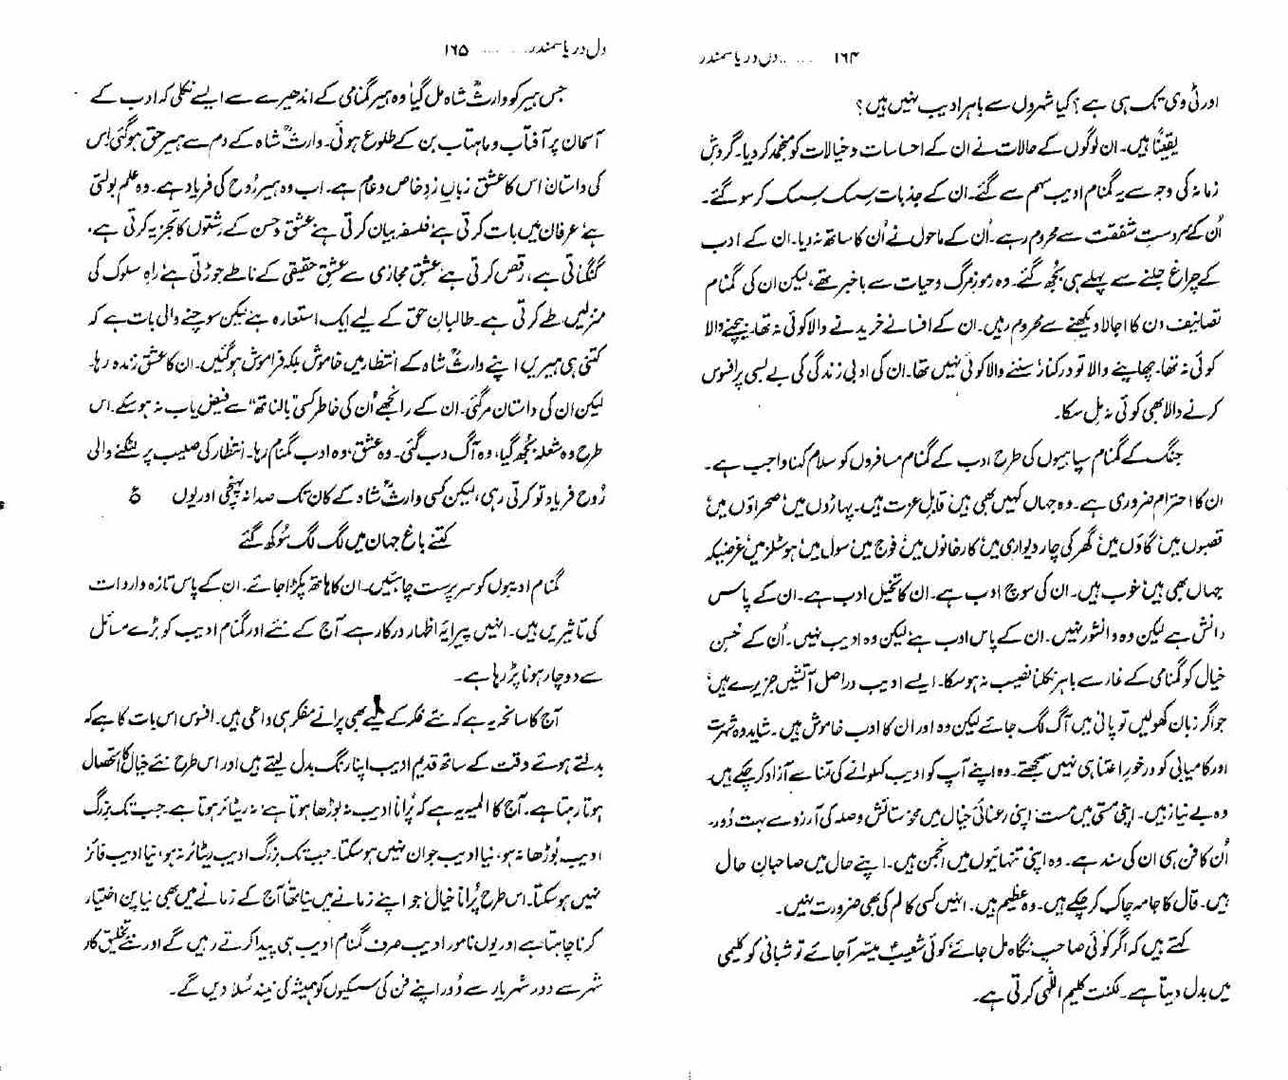 ۱۶۴ ..... دل دریا سمندر
اور ٹی وی تک ہی ہے؟ کیا شہروں سے باہر ادیب نہیں ہیں؟
یقیناً ہیں۔ ان لوگوں کے حالات نے ان کے احساسات و خیالات کو منجمد کر دیا۔ گردشِ
زمانہ کی وجہ سے یہ گمنام ادیب سہم سے گئے۔ ان کے جذبات سسک سسک کر سو گئے۔
اُن کے سر دستِ شفقت سے محروم رہے۔ اُن کے ماحول نے اُن کا ساتھ نہ دیا۔ ان کے ادب
کے چراغ جلنے سے پہلے ہی بجھ گئے۔ وہ رموزِ مرگ و حیات سے با خبر تھے، لیکن ان کی گمنام
تصانیف دن کا اجالا دیکھنے سے محروم رہیں۔ ان کے افسانے خریدنے والا کوئی نہ تھا۔ بیچنے والا
کوئی نہ تھا۔ چھاپنے والا تو درکنار سننے والا کوئی نہیں تھا۔ ان کی ادبی زندگی کی بے بسی پر افسوس
کرنے والا بھی کوئی نہ مل سکا۔
جنگ کے گمنام سپاہیوں کی طرح ادب کے گمنام مسافروں کو سلام کہنا واجب ہے۔
ان کا احترام ضروری ہے۔ وہ جہاں کہیں بھی ہیں قابلِ عزت ہیں۔ پہاڑوں میں، صحراؤں میں،
قصبوں میں، گاؤں میں، گھر کی چار دیواری میں، کارخانوں میں، فوج میں، سول میں، ہوسٹلز میں، غرضیکہ
جہاں بھی ہیں، خوب ہیں۔ ان کی سوچ ادب ہے۔ ان کا تخیل ادب ہے۔ ان کے پاس
دانش ہے لیکن وہ دانشور نہیں۔ ان کے پاس ادب ہے، لیکن وہ ادیب نہیں۔ اُن کے حسنِ
خیال کو گمنامی کے غار سے باہر نکلنا نصیب نہ ہو سکا۔ ایسے ادیب دراصل آتشیں جزیرے ہیں،
جو اگر زبان کھولیں تو پانی میں آگ لگ جائے لیکن وہ اور ان کا ادب خاموش ہیں۔ شاید وہ شہرت
اور کامیابی کو درخورِ اعتنا ہی نہیں سمجھتے۔ وہ اپنے آپ کو ادیب کہلوانے کی تمنا سے آزاد کر چکے ہیں۔
وہ بے نیاز ہیں۔ اپنی مستی میں مست، اپنی رعنائیِ خیال میں محو، ستائش و صلہ کی آرزو سے بہت دُور۔
اُن کا فن ہی ان کی سند ہے۔ وہ اپنی تنہائیوں میں انجمن ہیں۔ اپنے حال میں صاحبانِ حال
ہیں۔ قال کا جامہ چاک کر چکے ہیں۔ وہ عظیم ہیں۔ انہیں کسی کالم کی بھی ضرورت نہیں۔
کہتے ہیں کہ اگر کوئی صاحبِ نگاہ مل جائے، کوئی شعیبؑ میسّر آ جائے تو شبانی کو کلیمی
میں بدل دیتا ہے۔ لکنت کلیم اللّٰہی کرتی ہے۔
دل دریا سمندر ..... ۱۶۵
جس ہیر کو وارث شاہؒ مل گیا، وہ ہیر گمنامی کے اندھیرے سے ایسے نکلی کہ ادب کے
آسمان پر آفتاب و ماہتاب بن کے طلوع ہوئی۔ وارث شاہؒ کے دم سے ہیر حق ہو گئی، اِس
کی داستان، اس کا عشق زباں زدِ خاص و عام ہے۔ اب وہ ہیر رُوح کی فریاد ہے۔ وہ علم بولتی
ہے، عرفان میں بات کرتی ہے، فلسفہ بیان کرتی ہے، عشق و حسن کے رشتوں کا تجزیہ کرتی ہے،
گنگناتی ہے، رقص کرتی ہے، عشقِ مجازی سے عشقِ حقیقی کے ناطے جوڑتی ہے، راہِ سلوک کی
منزلیں طے کرتی ہے۔ طالبانِ حق کے لیے ایک استعارہ ہے، لیکن سوچنے والی بات ہے کہ
کتنی ہی ہیریں اپنے وارث شاہؒ کے انتظار میں خاموش بلکہ فراموش ہو گئیں۔ ان کا عشق زندہ رہا۔
لیکن ان کی داستان مر گئی۔ ان کے رانجھے اُن کی خاطر کسی "بالناتھ" سے فیض یاب نہ ہو سکے۔ اس
طرح وہ شعلہ بجھ گیا، وہ آگ دب گئی۔ وہ عشق، وہ ادب گمنام رہا۔ انتظار کی صلیب پر لٹکنے والی
رُوح فریاد تو کرتی رہی، لیکن کسی وارث شاہؒ کے کان تک صدا نہ پہنچی اور یوں ع
کتنے باغ جہان میں لگ لگ سُوکھ گئے
گمنام ادیبوں کو سرپرست چاہئیں۔ ان کا ہاتھ پکڑا جائے۔ ان کے پاس تازہ واردات
کی تاثیریں ہیں۔ انہیں پیرایۂ اظہار درکار ہے۔ آج کے نئے اور گمنام ادیب کو بڑے مسائل
سے دوچار ہونا پڑ رہا ہے۔
آج کا سانحہ یہ ہے کہ نئے فکر کے لیے بھی پرانے مفکر ہی داعی ہیں۔ افسوس اس بات کا ہے کہ
بدلتے ہوئے وقت کے ساتھ قدیم ادیب اپنا رنگ بدل لیتے ہیں اور اس طرح نئے خیال کا استحصال
ہوتا رہتا ہے۔ آج کا المیہ یہ ہے کہ پُرانا ادیب نہ بوڑھا ہوتا ہے، نہ ریٹائر ہوتا ہے۔ جب تک بزرگ
ادیب بُوڑھا نہ ہو، نیا ادیب جوان نہیں ہو سکتا۔ جب تک بزرگ ادیب ریٹائر نہ ہو، نیا ادیب فائز
نہیں ہو سکتا۔ اس طرح پُرانا خیال، جو اپنے زمانے میں نیا تھا، آج کے زمانے میں بھی نیا پن اختیار
کرنا چاہتا ہے اور یوں نامور ادیب صرف گمنام ادیب ہی پیدا کرتے رہیں گے اور نئے تخلیق کار
شہر سے دور، شہریار سے دُور اپنے فن کی سسکیوں کو ہمیشہ کی نیند سُلا دیں گے۔